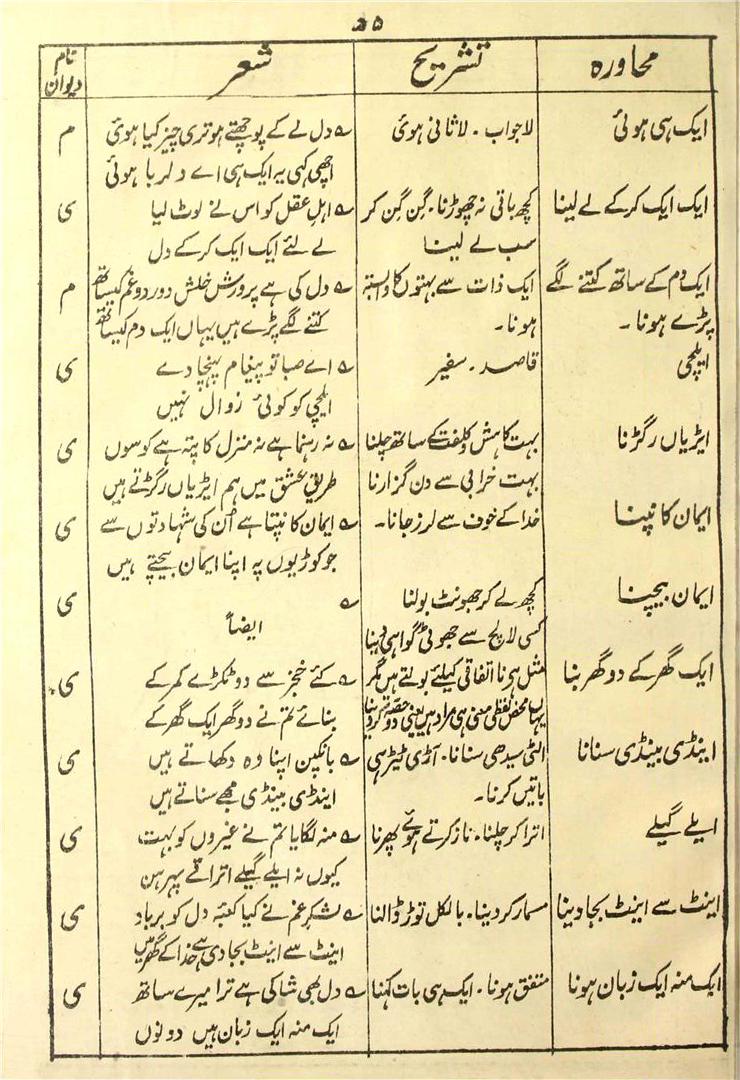 ۵۸
محاورہ تشریح شعر نام دیوان
ایک ہی ہوئی لاجواب ۔ لاثانی ہوئی ؎ دل لے کے پوچھتے ہو تری چیز کیا ہوئی م
اچھی کہی یہ ایک ہی اے دلربا ہوئی
ایک ایک کرکے لے لینا کچھ باقی نہ چھوڑنا ۔ گن گن کر ؎ اہل عقل کو اس نے لوٹ لیا ی
سب لے لینا لے لئے ایک ایک کرکے دل
ایک دم کے ساتھ کتنے لگے ایک ذات سے بہتوں کا وابستہ ؎ دل کی ہے پرورش خلش و درد و غم کیساتھ م
پڑے ہونا ۔ ہونا ۔ کتنے لگے پڑے ہیں یہاں ایک دم کیساتھ
ایلچی قاصد ۔ سفیر ؎ اے صبا تو پیغام پہنچا دے ی
ایلچی کو کوئی زوال نہیں
ایڑیاں رگڑنا بہت کاہش و کلفت کے ساتھ چلنا ؎ نہ رہنما ہے نہ منزل کا پتہ ہے کوسوں ی
بہت خرابی سے دن گزارنا طریق عشق میں ہم ایڑیاں رگڑتے ہیں
ایمان کانپنا خدا کے خوف سے لرز جانا ۔ ؎ ایمان کانپتا ہے اُن کی شہادتوں سے ی
جو کوڑیوں پہ اپنا ایمان بیچتے ہیں
ایمان بیچنا کچھ لے کر جھونٹ بولنا ؎ ی
کسی لالچ سے جھوٹی گواہی دینا ایضاً
ایک گھر کے دو گھر بنا مثل ہونا اتفاقی کیلئے بولتے ہیں مگر ؎ کئے خنجر سے دو ٹکڑے کمر کے ی
یہاں محض لفظی معنی ہی مراد ہیں یعنی دو حصہ کر دینا بنائے تم نے دو گھر ایک گھر کے
اینڈی بینڈی سنانا الٹی سیدھی سنانا ۔ آڑی ٹیڑھی ؎ بانکپن اپنا وہ دکھاتے ہیں ی
باتیں کرنا ۔ اینڈی بینڈی مجھے سناتے ہیں
ایلے گیلے اترا کر چلنا ۔ ناز کرتے ہوئے پھرنا ؎ منہ لگایا تم نے غیروں کو بہت ی
کیوں نہ ایلے گیلے اتراتے پھریں
اینٹ سے اینٹ بجا دینا مسمار کر دینا ۔ بالکل توڑ ڈالنا ؎ لشکر غم نے کیا کعبہ دل کو برباد ی
اینٹ سے اینٹ بجا دی ہے خدا کے گھر میں
ایک منہ ایک زبان ہونا متفق ہونا ۔ ایک ہی بات کہنا ؎ دل بھی شاکی ہے ترا میرے ساتھ ی
ایک منہ ایک زبان ہیں دونوں